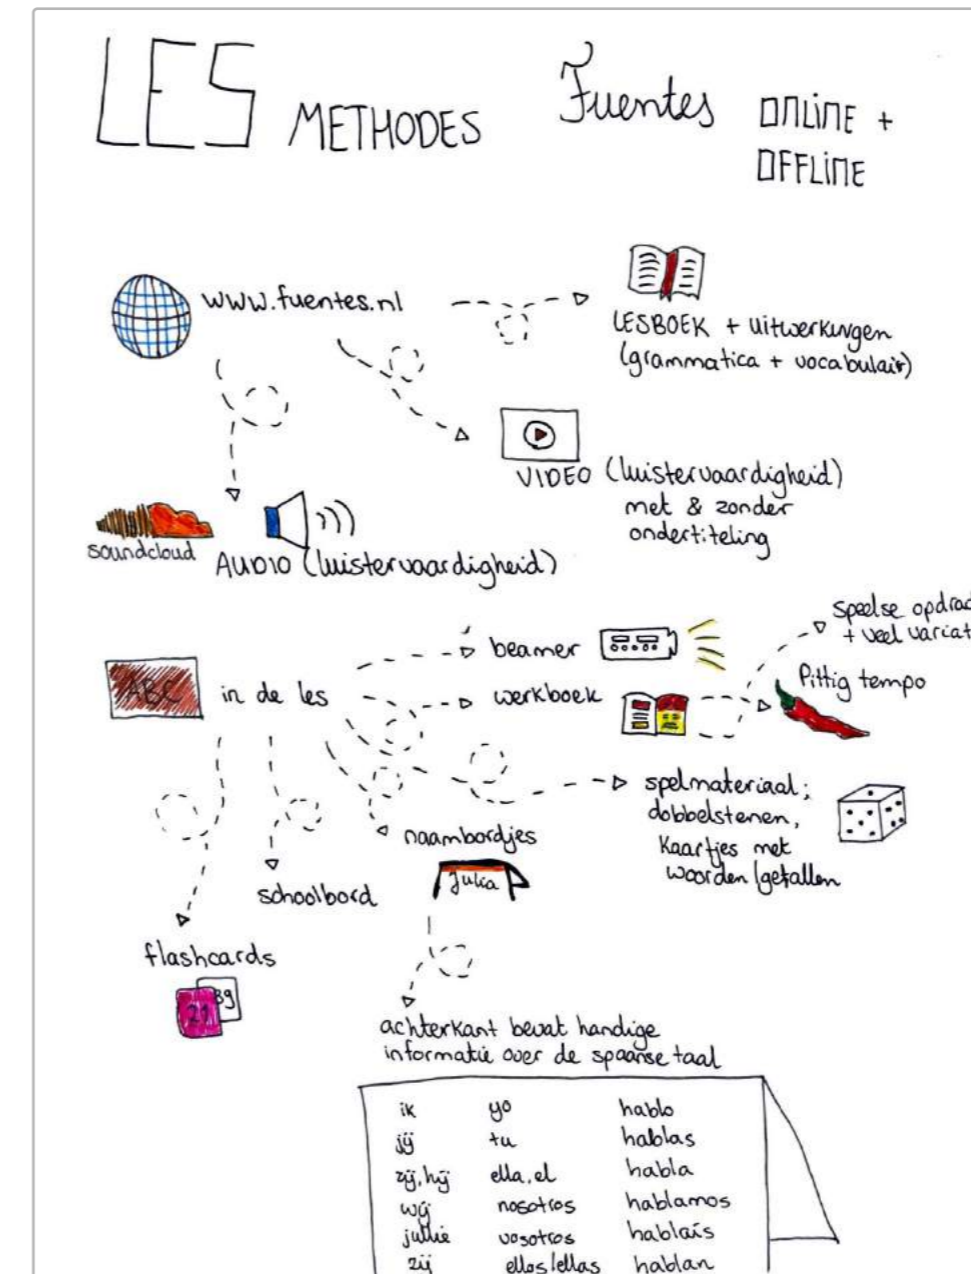 LES METHODES Fuentes ONLINE +
OFFLINE
www.fuentes.nl
LESBOEK + uitwerkingen
(grammatica + vocabulair)
VIDEO (luistervaardigheid)
met & zonder
ondertiteling
soundcloud
AUDIO (luistervaardigheid)
ABC in de les
beamer
werkboek
speelse opdrac
+ veel variat
Pittig tempo
spelmateriaal;
dobbelstenen,
kaartjes met
woorden/getallen
naambordjes
Julia
schoolbord
flashcards
21 89
achterkant bevat handige
informatie over de spaanse taal
ik yo hablo
jij tu hablas
zij, hij ella, el habla
wij nosotros hablamos
jullie vosotros hablaís
zij ellos/ellas hablan